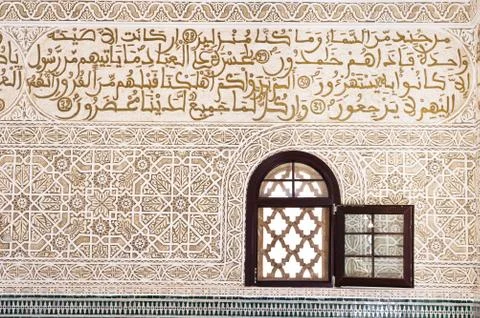 من جند من السماء وما كنا منزلين 28 إن كانت إلا صيحة
واحدة فإذا هم خامدون 29 يحسرة على العباد ما ياتيهم من رسول
إلا كانوا به يستهزءون 30 ألم يروا كم أهلكنا قبلهم من القرون أنهم
إليهم لا يرجعون 31 وإن كل لما جميع لدينا محضرون 32